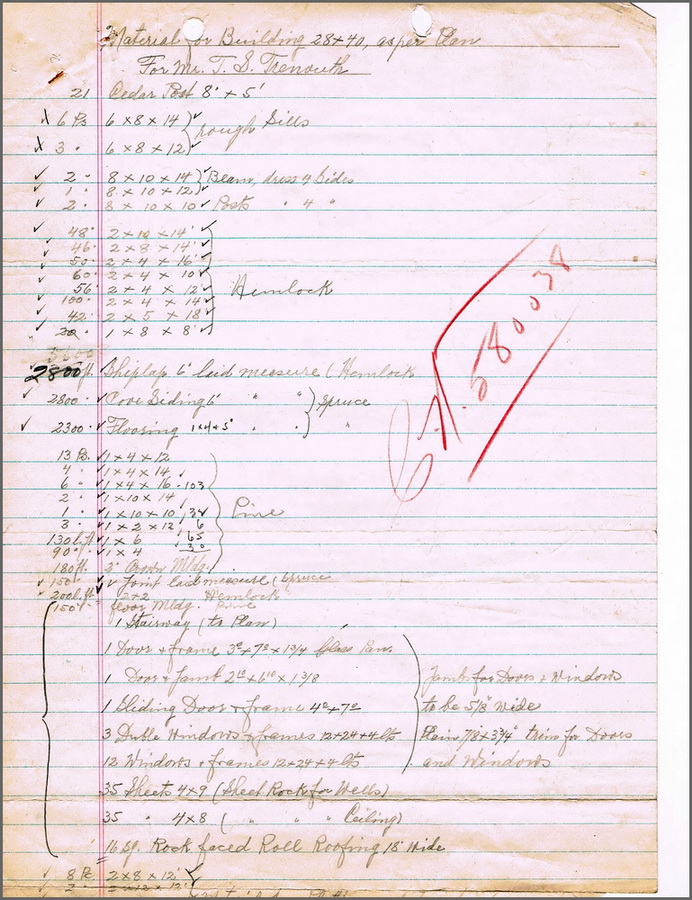 Material for Building 28x40, as per Plan
For Mr. T. S. Trenouth
21 Cedar Post 8' x 5'
6 Ps 6 x 8 x 14 } rough Sills
3 " 6 x 8 x 12
2 " 8 x 10 x 14 } Beam, dress 4 Sides
1 " 8 x 10 x 12
2 " 8 x 10 x 10 Posts " 4 "
48 " 2 x 10 x 14'
46 " 2 x 8 x 14'
50 " 2 x 4 x 16'
60 " 2 x 4 x 10
56 " 2 x 4 x 12 } Hemlock
100 " 2 x 4 x 14
42 " 2 x 5 x 18
20 " 1 x 8 x 8'
2800 ft. Shiplap 6" laid measure (Hemlock
2800 " Cove Siding 6" " " } Spruce
2300 " Flooring 1x4x5" " " "
13 Ps. 1 x 4 x 12
4 " 1 x 4 x 14
6 " 1 x 4 x 16 - 103
2 " 1 x 10 x 14
1 " 1 x 10 x 10 } Pine
3 " 1 x 2 x 12 6
130 l. ft 1 x 6 65
90 " 1 x 4 30
180 ft. 3" Crown Mldg.
150 " V Joint laid measure (Spruce
200 l. ft. 2x2 Hemlock
150 " floor Mldg. Pine
1 Stairway (to Plan)
1 Door & frame 3° x 7° x 1 3/4 Glass
1 Door & Jamb 2¹⁰ x 6¹⁰ x 1 3/8 Jambs for Doors & Windows
1 Sliding Door & frame 4° x 7° to be 5 1/8" wide
3 Duble Windows & frames 12x24x4 lts Plain 7/8 x 3 3/4" trim for Doors
12 Windows & frames 12x24x4 lts and Windows
35 Sheets 4x9 (Sheet Rock for Wells)
35 " 4x8 ( " " " Ceiling)
16 Sq. Rock faced Roll Roofing 18" Wide
8 Ps. 2 x 8 x 12'
2 " 2 x 12 x 12'
580038